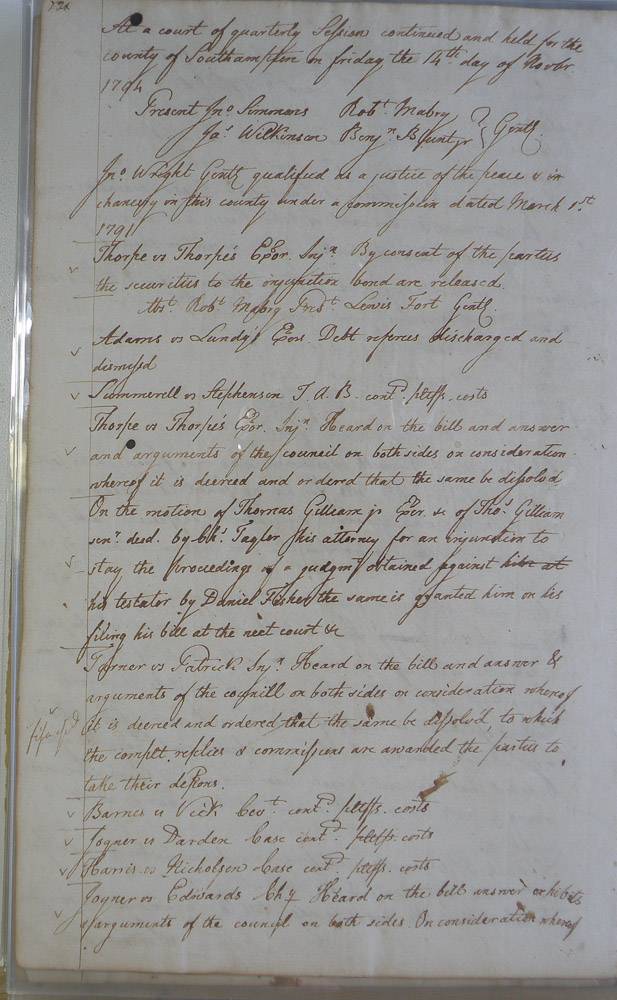 At a court of quarterly Session continued and held for the
county of Southampton on friday the 14th day of Novbr.
1794
Present Jno. Simmons Robt. Mabry
Jas. Wilkinson Benjn. Blunt jr } Gentl.
Jno. Wright Gentl qualified as a justice of the peace & in
chancery in this county under a commission dated March 1st.
1791
Thorpe vs Thorpe's Exor. Injn. By consent of the parties
the securities to the injunction bond are released.
Abst. Robt. Mabry Prest. Lewis Fort Gentl.
Adams vs Lundy's Exrs. Debt referees discharged and
dismissd
Summerell vs Stephenson T. A. B. contd. pltffs. costs
Thorpe vs Thorpe's Exor. Injn. Heard on the bill and answer
and arguments of the council on both sides on consideration
whereof it is decreed and ordered that the same be dissolvd
On the motion of Thomas Gilliam jr Exer. &c of Thos. Gilliam
senr. decd. by Chs. Taylor his attorney for an injunction to
stay the proceedings on a judgmt. obtained against him at
his testator by Daniel Fisher the same is granted him on his
filing his bill at the next court &c
Turner vs Patrick Injn. Heard on the bill and answer &
arguments of the councill on both sides on consideration whereof
it is decreed and ordered that the same be dissolv'd, to which
the complt. replies & commissions are awarded the parties to
take their depons.
Barnes vs Vick Covt. contd. pltffs. costs
Joyner vs Darden Case contd. pltffs. costs
Harris vs Nicholson Case contd. pltffs. costs
Joyner vs Edwards Chy Heard on the bill answer exhibits
& arguments of the council on both sides. On consideration whereof